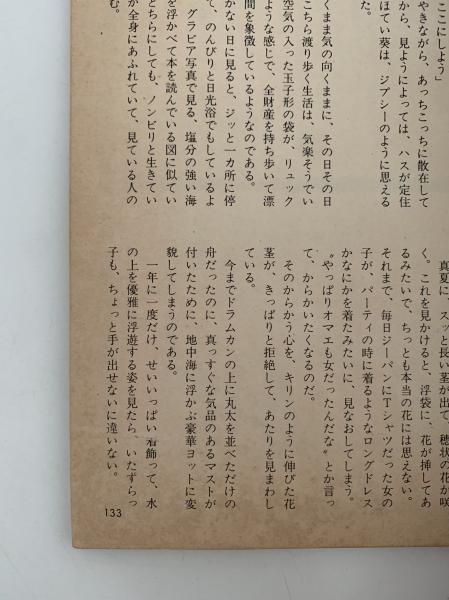 にしよう」
やきながら、あっちこっちに散在して
から、見ようによっては、ハスが定住
ほてい葵は、ジプシーのように思える
た。
くまま気の向くままに、その日その日
こちら渡り歩く生活は、気楽そうでい
空気の入った玉子形の袋が、リュック
ような感じで、全財産を持ち歩いて漂
間を象徴しているようなのである。
かない日に見ると、ジッと一カ所に停
て、のんびりと日光浴でもしているよ
グラビア写真で見る、塩分の強い海
を浮かべて本を読んでいる図に似てい
どちらにしても、ノンビリと生きてい
が全身にあふれていて、見ている人の
む。
真夏に、スッと長い茎が出て、穂状の花が咲
く。これを見かけると、浮袋に、花が挿してあ
るみたいで、ちっとも本当の花には思えない。
それまで、毎日ジーパンにTシャツだった女の
子が、パーティの時に着るようなロングドレス
かなにかを着たみたいに、見なおしてしまう。
〝やっぱりオマエも女だったんだな〟とか言っ
て、からかいたくなるのだ。
そのからかう心を、キリンのように伸びた花
茎が、きっぱりと拒絶して、あたりを見まわし
ている。
今までドラムカンの上に丸太を並べただけの
舟だったのに、真っすぐな気品のあるマストが
付いたために、地中海に浮かぶ豪華ヨットに変
貌してしまうのである。
一年に一度だけ、せいいっぱい着飾って、水
の上を優雅に浮遊する姿を見たら、いたずらっ
子も、ちょっと手が出せないに違いない。
133